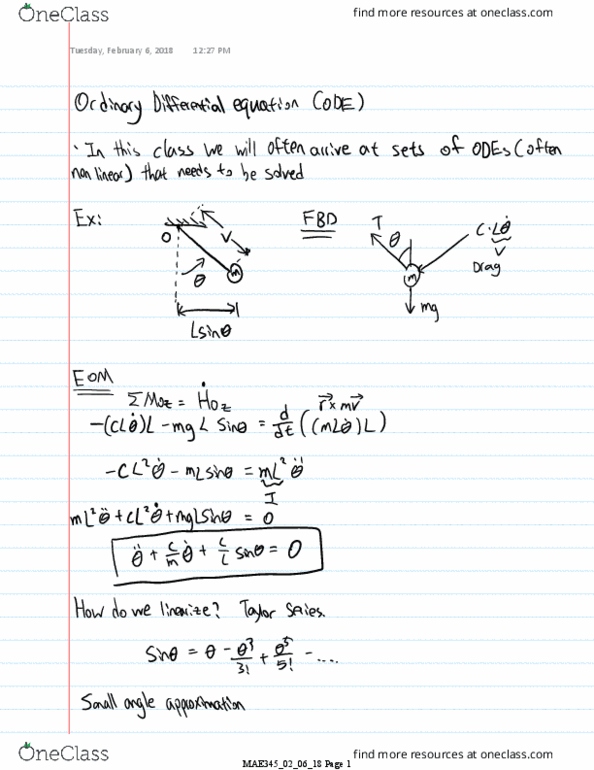 OneClass
find more resources at oneclass.com
Tuesday, February 6, 2018 12:27 PM
Ordinary Differential equation (ODE)
· In this class we will often arrive at sets of ODEs (often
non linear) that needs to be solved
Ex:
O
L
θ
m
Lsinθ
FBD
T
θ
m
C·Lθ̇
V
Drag
mg
EOM
ΣMoz = Ḣoz
r⃗ x mv⃗
-(cLθ̇)L - mgL Sinθ = d/dt ((mLθ̇)L)
-CL²θ̇ - mLsinθ = mL²θ̈
I
mL²θ̈ + cL²θ̇ + mgLSinθ = 0
θ̈ + c/m θ̇ + c/L sinθ = 0
How do we linearize? Taylor Series.
Sinθ = θ - θ³/3! + θ⁵/5! - ....
Small angle approximation
OneClass
find more resources at oneclass.com
MAE345_02_06_18 Page 1